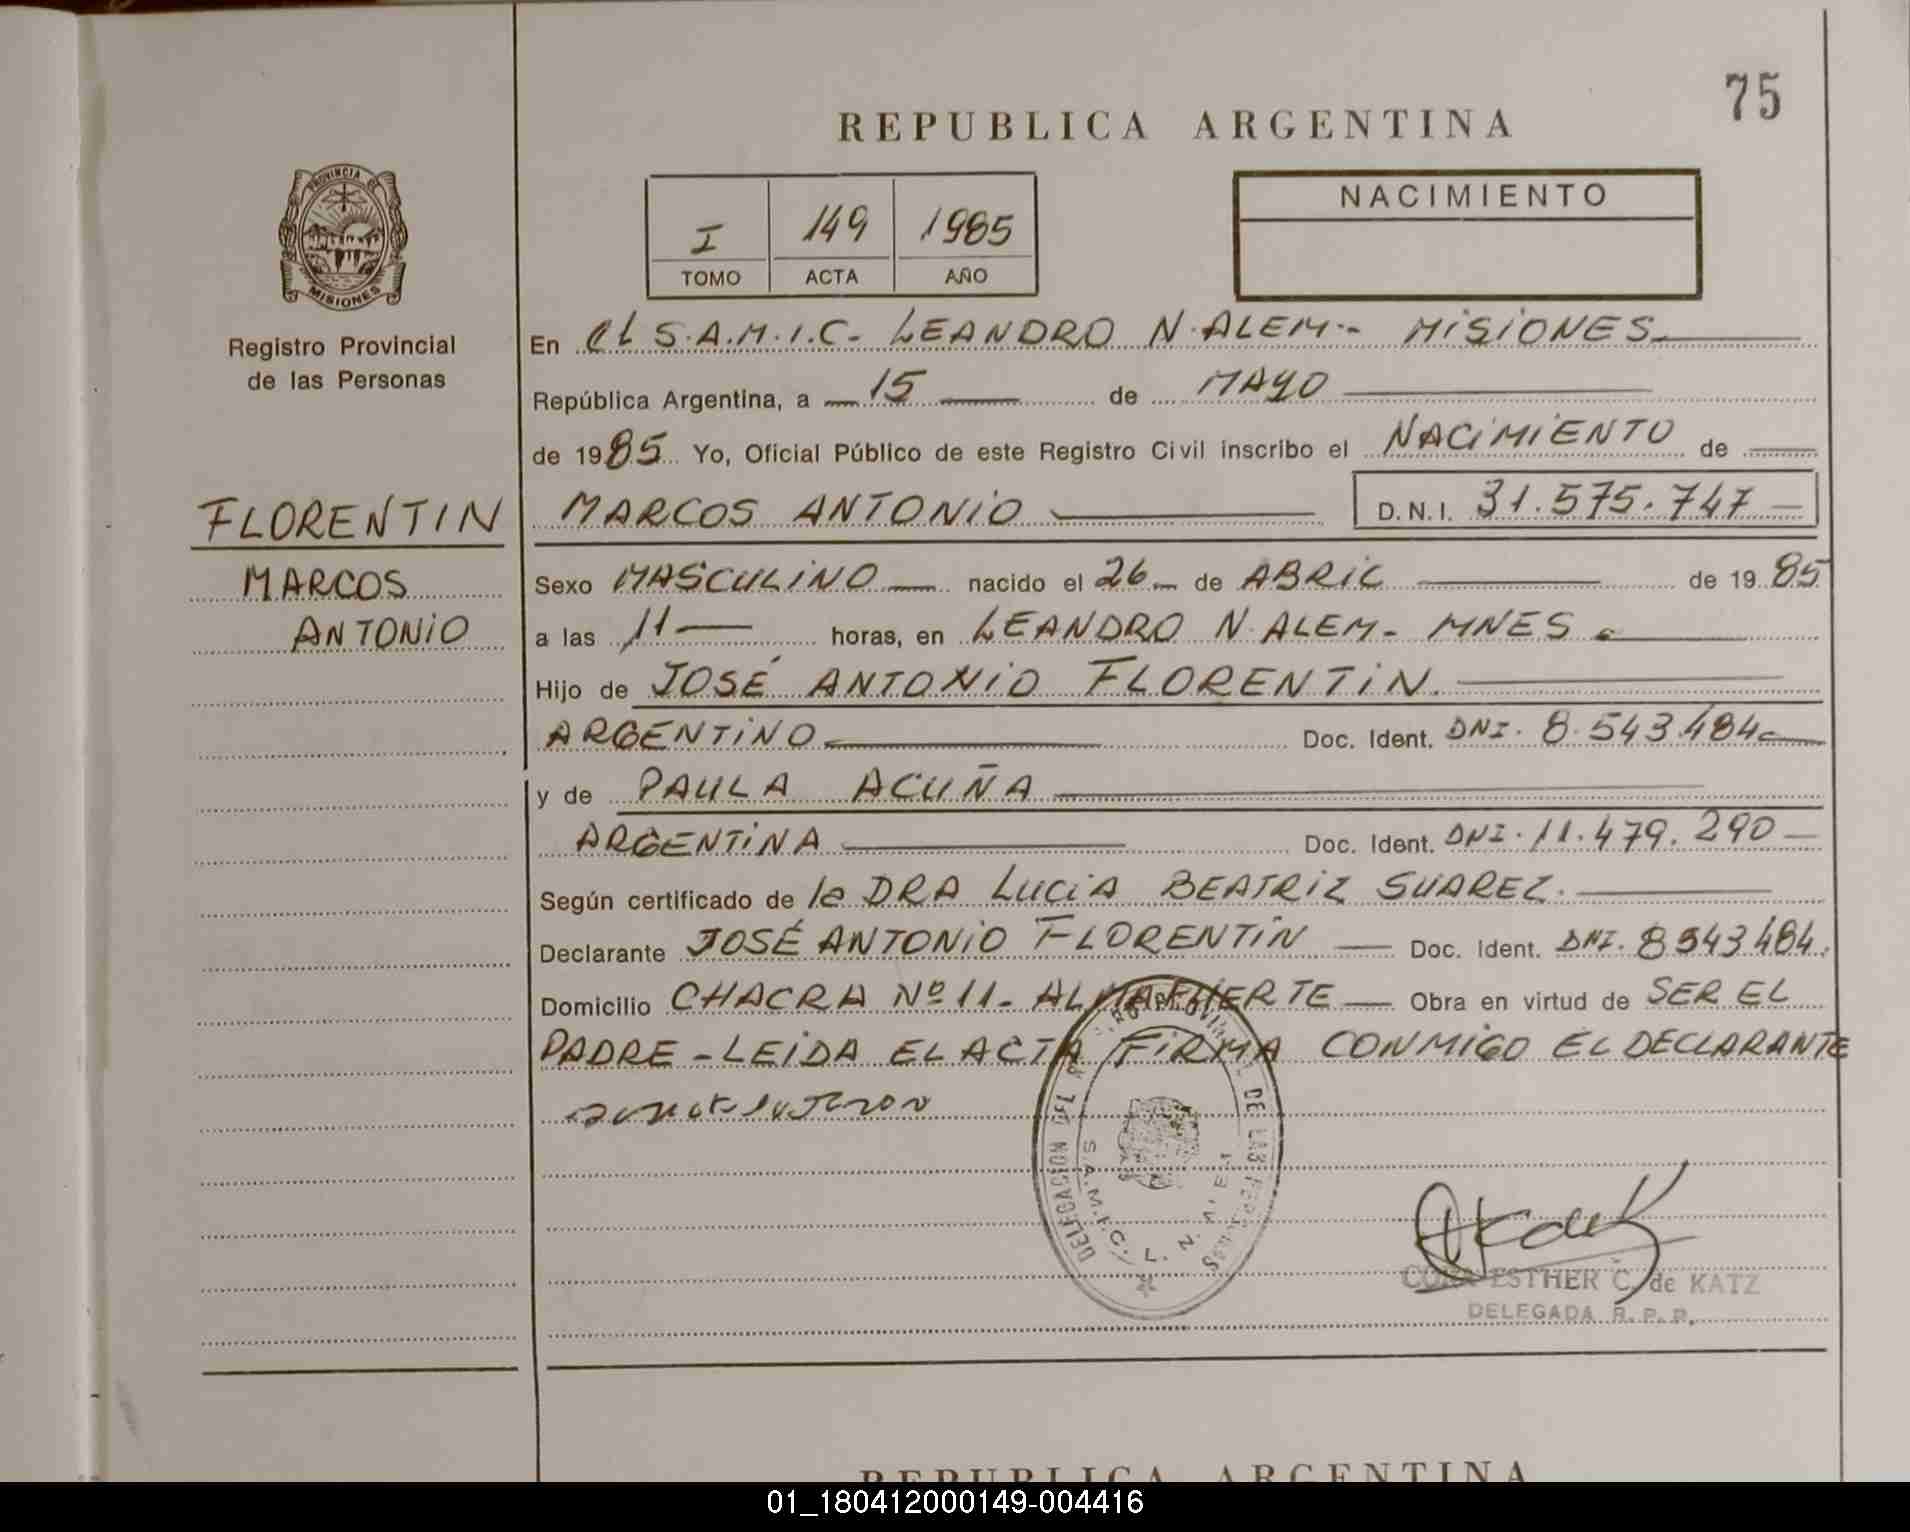 75
REPUBLICA ARGENTINA
I 149 1985
TOMO ACTA AÑO
NACIMIENTO
PROVINCIA DE
MISIONES
Registro Provincial
de las Personas
FLORENTIN
MARCOS
ANTONIO
En el S.A.M.I.C- LEANDRO N. ALEM.- MISIONES.
República Argentina, a 15 de MAYO
de 1985 Yo, Oficial Público de este Registro Civil inscribo el NACIMIENTO de
MARCOS ANTONIO D.N.I. 31.575.747
Sexo MASCULINO nacido el 26 de ABRIL de 1985
a las 11 horas, en LEANDRO N. ALEM- MNES
Hijo de JOSÉ ANTONIO FLORENTIN.
ARGENTINO Doc. Ident. DNI. 8.543.484
y de PAULA ACUÑA
ARGENTINA Doc. Ident. DNI. 11.479.290
Según certificado de la DRA LUCIA BEATRIZ SUAREZ.
Declarante JOSÉ ANTONIO FLORENTIN Doc. Ident. DNI. 8543484.
Domicilio CHACRA Nº 11- ALMAFUERTE Obra en virtud de SER EL
PADRE - LEIDA EL ACTA FIRMA CONMIGO EL DECLARANTE
DELEGACION DEL PROVINCIAL DE LAS PERSONAS
S.A.M.I.C. L. N. ALEM
ESTHER C. de KATZ
DELEGADA R.P.P.
REPUBLICA ARGENTINA
01_180412000149-004416